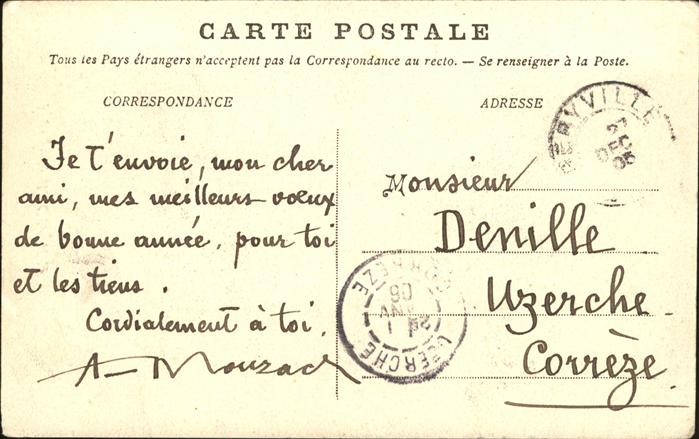 CARTE POSTALE
Tous les Pays étrangers n'acceptent pas la Correspondance au recto. — Se renseigner à la Poste.
CORRESPONDANCE
ADRESSE
Je t'envoie, mon cher
ami, mes meilleurs vœux
de bonne année, pour toi
et les tiens.
Cordialement à toi.
A. Mouzac
Monsieur
Denille
Uzerche
Corrèze.
RYVILLE
DEC
05
UZERCHE
CORRÈZE
1
JANV
06